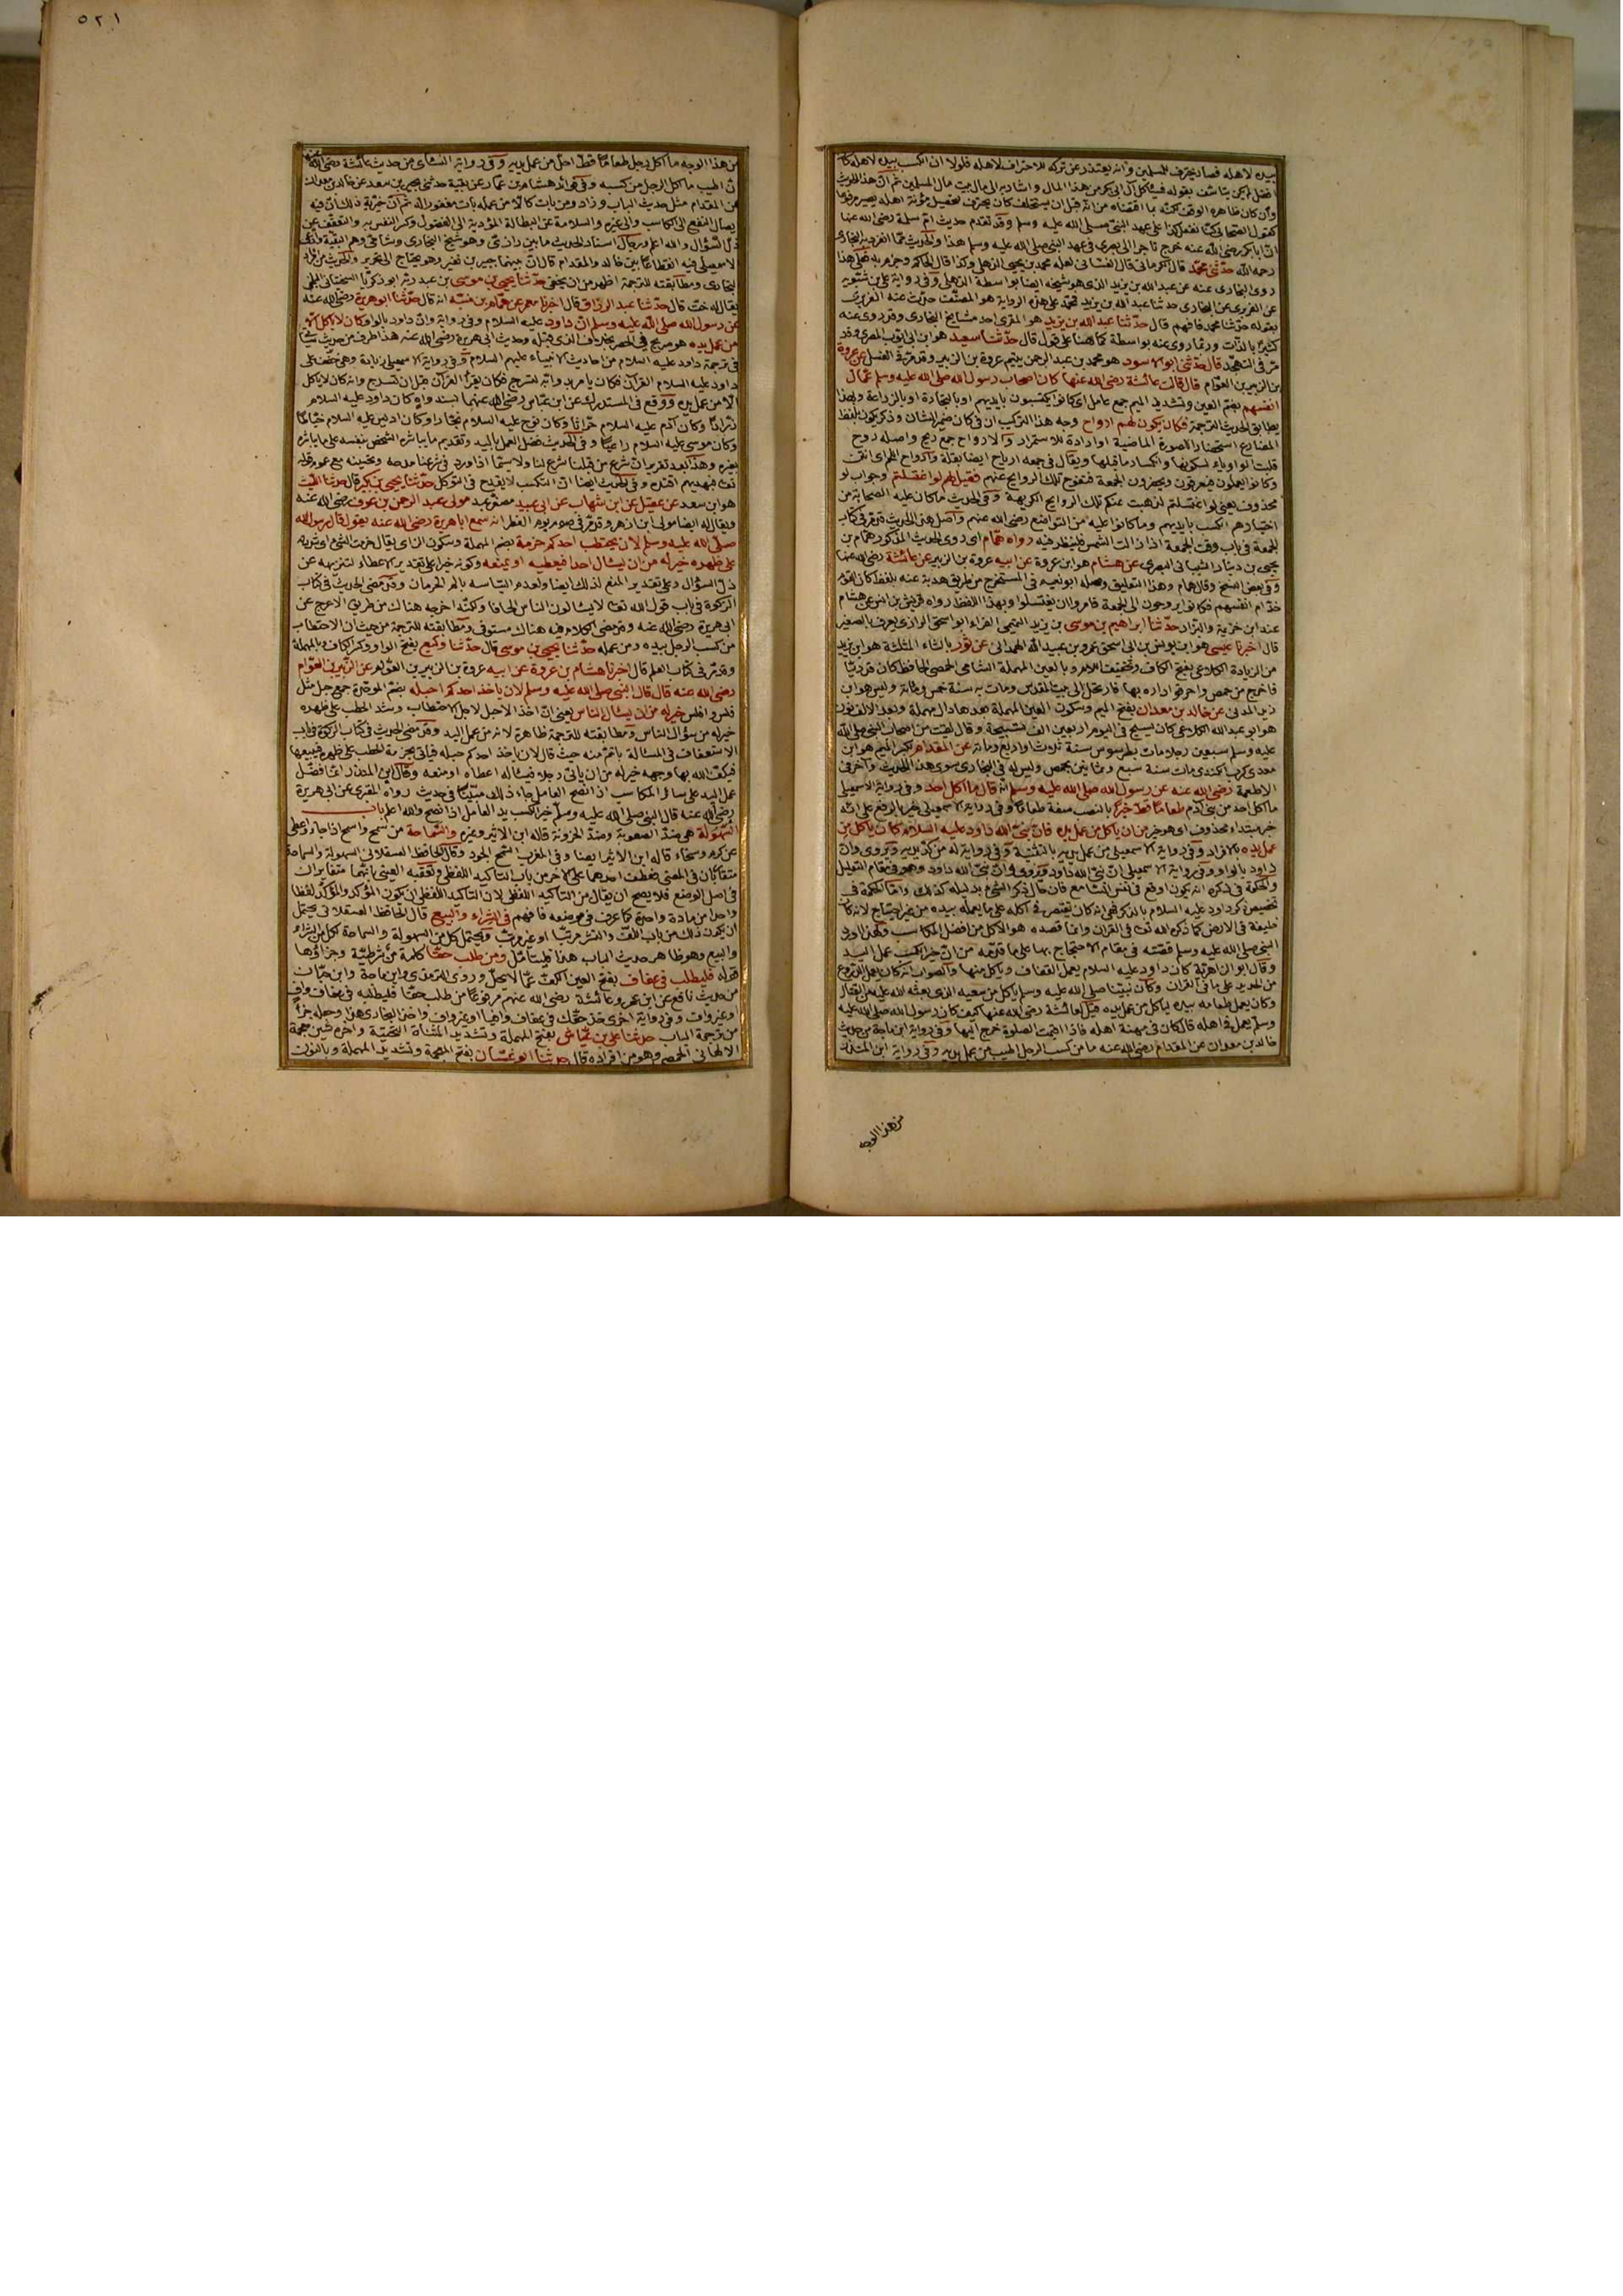 بيده لاهله فصار يحترف للمسلمين وانه يعتذر عن تركه للاحتراف لاهله فلولا ان الكسب بيده لاهله كان
افضل لم يكن يتأسف بقوله فسيأكل آل ابي بكر من هذا المال واشار به الى مال بيت مال المسلمين ثم ان هذا الحديث
وان كان ظاهره الوقف لكنه بما اقتضاه من انه قبل ان يستخلف كان يحترف لتحصيل مؤنة اهله يصير مرفوعا
كقول الصحابي كنا نفعل كذا على عهد النبي صلى الله عليه وسلم وقد تقدم حديث ام سلمة رضي الله عنها
ان ابا بكر رضي الله عنه خرج تاجرا الى بصرى في عهد النبي صلى الله عليه وسلم هذا والحديث مما انفرد به البخاري
رحمه الله حدثني محمد قال الكرماني قال الغساني لعله محمد بن يحيى الذهلي وكذا قال الحاكم وجزم به فعلى هذا
روى البخاري عنه عن عبد الله بن يزيد الذي هو شيخه ايضا بواسطة الذهلي وفي رواية علي بن شبويه
عن الفربري عن البخاري حدثنا عبد الله بن يزيد فمحمد على هذه الرواية هو المصنف حدث عنه الفربري
بقوله حدثنا محمد فافهم قال حدثنا عبد الله بن يزيد هو المقرئ احد مشايخ البخاري وقد روى عنه
كثيرا بالذات وربما روى عنه بواسطة كما هنا على قول قال حدثنا سعيد هو ابن ابي ايوب المصري وقد
مر في التهجد قال حدثني ابو الاسود هو محمد بن عبد الرحمن يتيم عروة بن الزبير وقد مر في الغسل عن عروة
بن الزبير بن العوام قال قالت عائشة رضي الله عنها كان اصحاب رسول الله صلى الله عليه وسلم عمال
انفسهم بضم العين وتشديد الميم جمع عامل اي كانوا يكتسبون بايديهم او بالتجارة او بالزراعة وبهذا
يطابق الحديث الترجمة فكان يكون لهم ارواح وجه هذا التركيب ان في كان ضمير الشان وذكر يكون بلفظ
المضارع استحضارا لصورة الماضية او ارادة للاستمرار والارواح جمع ريح واصله روح
قلبت الواو ياء لسكونها وانكسار ما قبلها ويقال في جمعه ارياح ايضا بقلة وارواح اللحم اي انتن
وكانوا يعملون فيعرقون ويحضرون الجمعة فتفوح تلك الروايح عنهم فقيل لهم لو اغتسلتم وجواب لو
محذوف يعني لو اغتسلتم لذهبت عنكم تلك الروايح الكريهة وفي الحديث ما كان عليه الصحابة من
اختيارهم الكسب بايديهم وما كانوا عليه من التواضع رضي الله عنهم واصل هذا الحديث قد مر في كتاب
الجمعة في باب وقت الجمعة اذا زالت الشمس فلينظر فيه رواه همام اي روى الحديث المذكور همام بن
يحيى بن دينار الشيباني البصري عن هشام هو ابن عروة عن ابيه عروة بن الزبير عن عائشة رضي الله عنها
وفي بعض النسخ وقال همام وهذا التعليق وصله ابو نعيم في المستخرج من طريق هدبة عنه بلفظ كان القوم
خدام انفسهم فكانوا يروحون الى الجمعة فامروا ان يغتسلوا وبهذا اللفظ رواه قريش بن انس عن هشام
عند ابن خزيمة والبزار حدثنا ابراهيم بن موسى بن يزيد التميمي الفراء ابو اسحق الرازي يعرف بالصغير
قال اخبرنا عيسى هو ابن يونس بن ابي اسحق عمرو بن عبيد الله الهمداني عن ثور بالثاء المثلثة هو ابن يزيد
من الزيادة الكلاعي بفتح الكاف وتخفيف اللام وبالعين المهملة الشامي الحمصي الحافظ كان قدريا
فاخرج من حمص واحرقوا داره بها فارتحل الى بيت المقدس ومات به سنة خمس ومائة وليس هو ابن
زيد المدني عن خالد بن معدان بفتح الميم وسكون العين المهملة بعدها دال مهملة وبعد الالف نون
هو ابو عبد الله الكلاعي كان يسبح في اليوم اربعين الف تسبيحة وقال لقيت من اصحاب النبي صلى الله
عليه وسلم سبعين رجلا مات بطرسوس سنة ثلاث او اربع ومائة عن المقدام بكسر الميم هو ابن
معدي كرب الكندي مات سنة سبع وثمانين بحمص وليس له في البخاري سوى هذا الحديث وآخر في
الاطعمة رضي الله عنه عن رسول الله صلى الله عليه وسلم انه قال ما اكل احد وفي رواية الاسمعيلي
ما اكل احد من بني آدم طعاما قط خيرا بالنصب صفة طعاما وفي رواية الاسمعيلي خير بالرفع على انه
خبر مبتدأ محذوف اي هو خير من ان ياكل من عمل يده فان نبي الله داود عليه السلام كان ياكل من
عمل يده بالافراد وفي رواية الاسمعيلي من عمل يديه بالتثنية وفي رواية له من كد يديه ويروى وان
داود بالواو وفي رواية الاسمعيلي ان نبي الله داود ويروى وان نبي الله داود وهو في مقام التعليل
والحكمة في ذكره انه يكون اوقع في نفس السامع فان حال ذكر الشيء بدليله كذلك واما الحكمة في
تخصيص ذكر داود عليه السلام بالذكر فهي انه كان يقتصر في اكله على ما يعمله بيده من غير احتياج لانه كان
خليفة في الارض كما ذكره الله تعالى في القران وانما قصده هو الاكل من افضل المكاسب ولهذا اورد
النبي صلى الله عليه وسلم قصته في مقام الاحتجاج بها على ما قدمه من ان خير الكسب عمل اليد
وقال ابو الزاهرية كان داود عليه السلام يعمل القفاف وياكل منها والصواب انه كان يعمل الدروع
من الحديد على ما في القران وكان نبينا صلى الله عليه وسلم ياكل من سعيه الذي بعثه الله عليه من القتال
وكان يعمل طعامه بيده لياكل من عمل يده قيل لعائشة رضي الله عنها كيف كان رسول الله صلى الله عليه
وسلم يعمل في اهله قالت كان في مهنة اهله فاذا اقيمت الصلوة خرج اليها وفي رواية ابن ماجة من حديث
خالد بن معدان عن المقدام رضي الله عنه ما من كسب الرجل اطيب من عمل يديه وفي رواية ابن المنذر
من هذا الوجه
٥٢١
من هذا الوجه ما اكل رجل طعاما قط احل من عمل يديه وفي رواية النسائي من حديث عائشة رضي الله عنها
ان اطيب ما اكل الرجل من كسبه وفي فوائد هشام بن عمار عن بقية حدثني بحير بن سعد عن خالد بن معدان
عن المقدام مثل حديث الباب وزاد ومن بات كالا من عمله بات مغفورا له ثم ان خيرية ذلك ان فيه
ايصال النفع الى الكاسب والى غيره والسلامة عن البطالة المؤدية الى الفضول وكسر النفس به والتعفف عن
ذل السؤال والله اعلم ورجال اسناد الحديث ما بين رازي وهو شيخ البخاري وشامي وهم البقية
الاسمعيلي فيه انقطاعا بين خالد والمقدام قال ان بينهما جبير بن نفير وهو يحتاج الى تحرير والحديث من افراد
البخاري ومطابقته للترجمة اظهر من ان يخفى حدثنا يحيى بن موسى بن عبد ربه ابو زكريا السختياني البلخي
يقال له خت قال حدثنا عبد الرزاق قال اخبرنا معمر عن همام بن منبه انه قال حدثنا ابو هريرة رضي الله عنه
عن رسول الله صلى الله عليه وسلم ان داود عليه السلام وفي رواية وان داود بالواو كان لا ياكل الا
من عمل يده هو صريح في الحصر بخلاف الذي قبله وحديث ابي هريرة رضي الله عنه هذا طرف من حديث سيأتي
في ترجمة داود عليه السلام من احاديث الانبياء عليهم السلام وفي رواية الاسمعيلي زيادة وهي خفف على
داود عليه السلام القرآن فكان يامر بدوابه لتسرج فكان يقرأ القرآن قبل ان تسرج وانه كان لا ياكل
الا من عمل يده ووقع في المستدرك عن ابن عباس رضي الله عنهما بسند واه كان داود عليه السلام
زرادا وكان آدم عليه السلام حراثا وكان نوح عليه السلام نجارا وكان ادريس عليه السلام خياطا
وكان موسى عليه السلام راعيا وفي الحديث فضل العمل باليد وتقديم ما يباشره الشخص بنفسه على ما يباشره
بغيره وهذا بعد تقرير ان شرع من قبلنا شرع لنا ولا سيما اذا ورد في شرعنا مدحه وتحسينه مع عموم قوله
تعالى فبهديهم اقتده وفي الحديث ايضا ان التكسب لا يقدح في التوكل حدثنا يحيى بن بكير قال حدثنا الليث
هو ابن سعد عن عقيل عن ابن شهاب عن ابي عبيد مصغر عبد مولى عبد الرحمن بن عوف رضي الله عنه
ويقال له ايضا مولى ابن ازهر وقد مر في صوم يوم الفطر انه سمع ابا هريرة رضي الله عنه يقول قال رسول الله
صلى الله عليه وسلم لان يحتطب احدكم حزمة بضم المهملة وسكون الزاي يقال حزمت الشيء اي شددته
على ظهره خير له من ان يسأل احدا فيعطيه او يمنعه وكونه خيرا على تقدير الاعطاء لتنزيهه عن
ذل السؤال وعلى تقدير المنع لذلك ايضا ولعدم التباسه بالم الحرمان وقد مضى الحديث في كتاب
الزكوة في باب قول الله تعالى لا يسألون الناس الحافا ولكنه اخرجه هناك من طريق الاعرج عن
ابي هريرة رضي الله عنه وقد مضى الكلام فيه هناك مستوفى ومطابقته للترجمة من حيث ان الاحتطاب
من كسب الرجل بيده ومن عمله حدثنا يحيى بن موسى قال حدثنا وكيع بفتح الواو وكسر الكاف وبالمهملة
وقد مر في كتاب العلم قال اخبرنا هشام بن عروة عن ابيه عروة بن الزبير بن العوام عن الزبير بن العوام
رضي الله عنه قال قال النبي صلى الله عليه وسلم لان ياخذ احدكم احبله بضم الموحدة جمع حبل مثل
فلس وافلس خير له من ان يسأل الناس يعني ان اخذ الاحبل لاجل الاحتطاب وشد الحطب على ظهره
خير له من سؤال الناس ومطابقته للترجمة ظاهرة لانه من عمل اليد وقد مضى الحديث في كتاب الزكوة في باب
الاستعفاف في المسألة باتم منه حيث قال لان ياخذ احدكم حبله فياتي بحزمة الحطب على ظهره فيبيعها
فيكف الله بها وجهه خير له من ان ياتي رجلا فيسأله اعطاه او منعه وقال ابن المنذر انما فضل
عمل اليد على سائر المكاسب اذا نصح العامل جاء ذلك مبينا في حديث رواه المقبري عن ابي هريرة
رضي الله عنه قال النبي صلى الله عليه وسلم خير الكسب يد العامل اذا نصح والله اعلم باب
السهولة هي ضد الصعوبة وضد الحزونة قاله ابن الاثير وغيره والسماحة من سمح واسمح اذا جاد واعطى
عن كرم وسخاء قاله ابن الاثير ايضا وفي المغرب السمح الجود وقال الحافظ العسقلاني السهولة والسماحة
متقاربان في المعنى فعطف احدهما على الاخر من باب التاكيد اللفظي وتعقبه العيني بانهما متغايران
في اصل الوضع فلا يصح ان يقال من التاكيد اللفظي لان التاكيد اللفظي ان يكون المؤكد والمؤكد لفظا
واحدا من مادة واحدة كما عرف في موضعه فافهم في الشراء والبيع قال الحافظ العسقلاني يحتمل
ان يكون ذلك من باب اللف والنشر مرتبا او غير مرتب ويحتمل كل من السهولة والسماحة لكل من الشراء
والبيع وهو ظاهر حديث الباب هذا فليتأمل ومن طلب حقا كلمة من شرطية وجزاؤها
قوله فليطلب في عفاف بفتح العين الكف عما لا يحل وروى الترمذي وابن ماجة وابن حبان
من حديث نافع عن ابن عمر وعائشة رضي الله عنهم مرفوعا من طلب حقا فليطلبه في عفاف واف
او غير واف وفي رواية اخرى خذ حقك في عفاف وافيا او غير واف واخذ البخاري هذا وجعله جزأ
من ترجمة الباب حدثنا علي بن عياش بفتح المهملة وتشديد المثناة التحتية وآخره شين معجمة
الالهاني الحمصي وهو من افراده قال حدثنا ابو غسان بفتح المعجمة وتشديد المهملة وبالنون